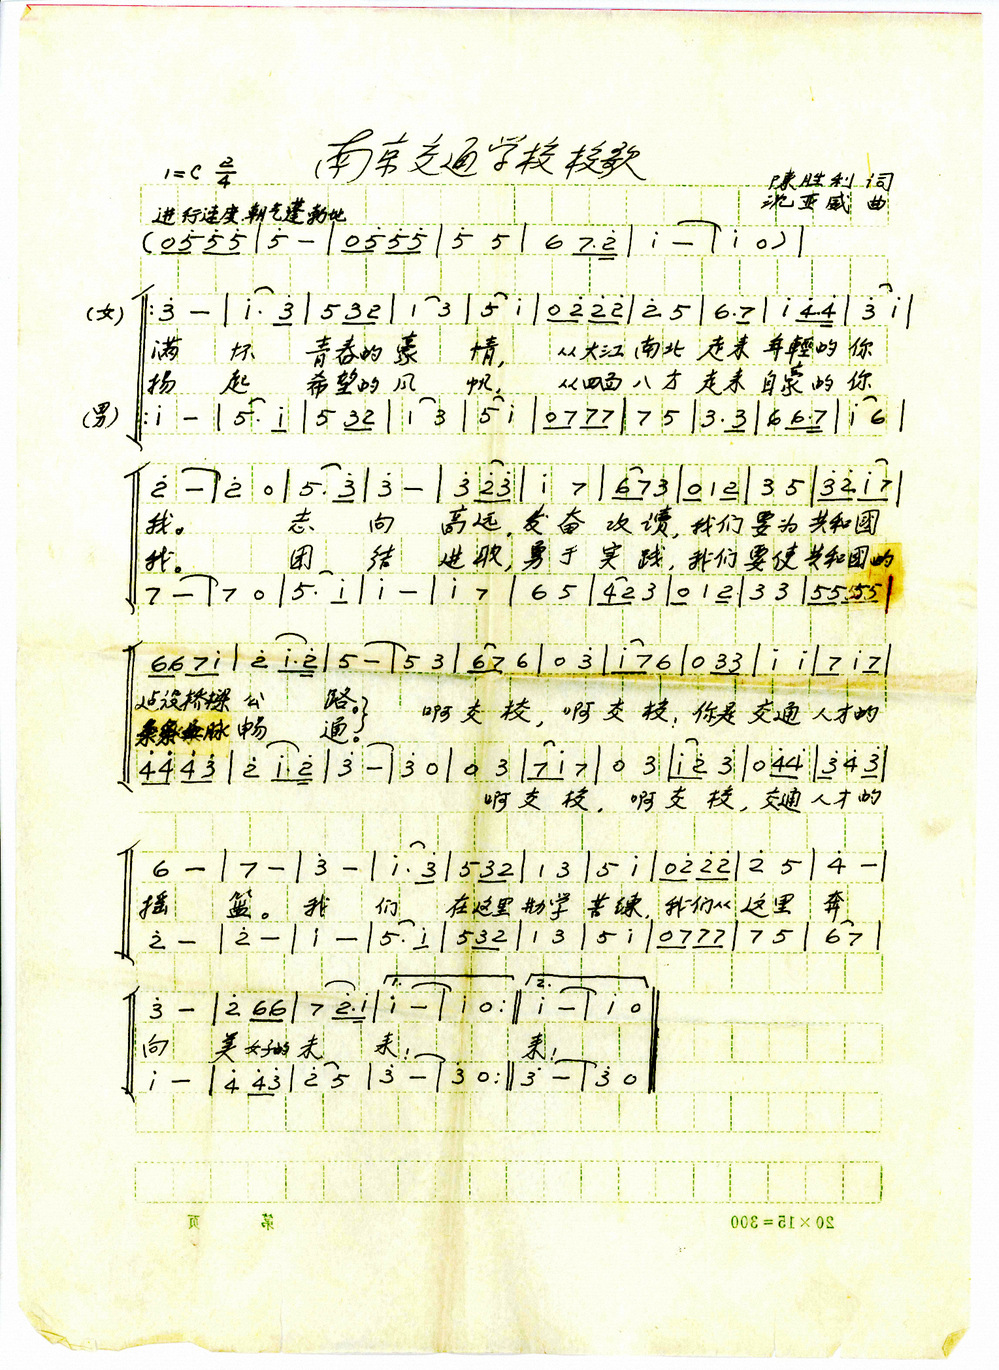 南京交通学校校歌
1=C 2/4
陳胜利 词
沈亚威 曲
进行速度 朝气蓬勃地
(0555|5-|0555|55|67.2|i-|i0)|
(女) ‖:3-|i.3|532|13|5i|0222|25|6.7|i44|3i|
满怀青春的豪情,从大江南北走来年輕的你
扬起希望的风帆,从四面八方走来自豪的你
(男) :i-|5.i|532|13|5i|0777|75|3.3|66.7|i6|
2-|20|5.3|3-|323|i7|673|012|35|32i7|
我。志向高远,发奋攻读,我们要为共和国
我。团结进取,勇于实践,我们要使共和国的
7-|70|5.i|i-|i7|65|423|012|33|5555|
667i|2i.2|5-|53|676|03|i76|033|ii|7i7|
建设桥樑公路。}啊交校,啊交校,你是交通人才的
脉畅通。
4443|2i.2|3-|30|03|7i7|03|i23|044|343|
啊交校,啊交校,交通人才的
6-|7-|3-|i.3|532|13|5i|0222|25|4-|
摇篮。我们在这里勤学苦练,我们从这里奔
2-|2-|i-|5.i|532|13|5i|0777|75|67|
1. 2.
3-|266|72.i|i-|i0:‖i-|i0‖
向美好的未来!来!
i-|443|25|3-|30:‖3-|30‖
第 页
20×15=300